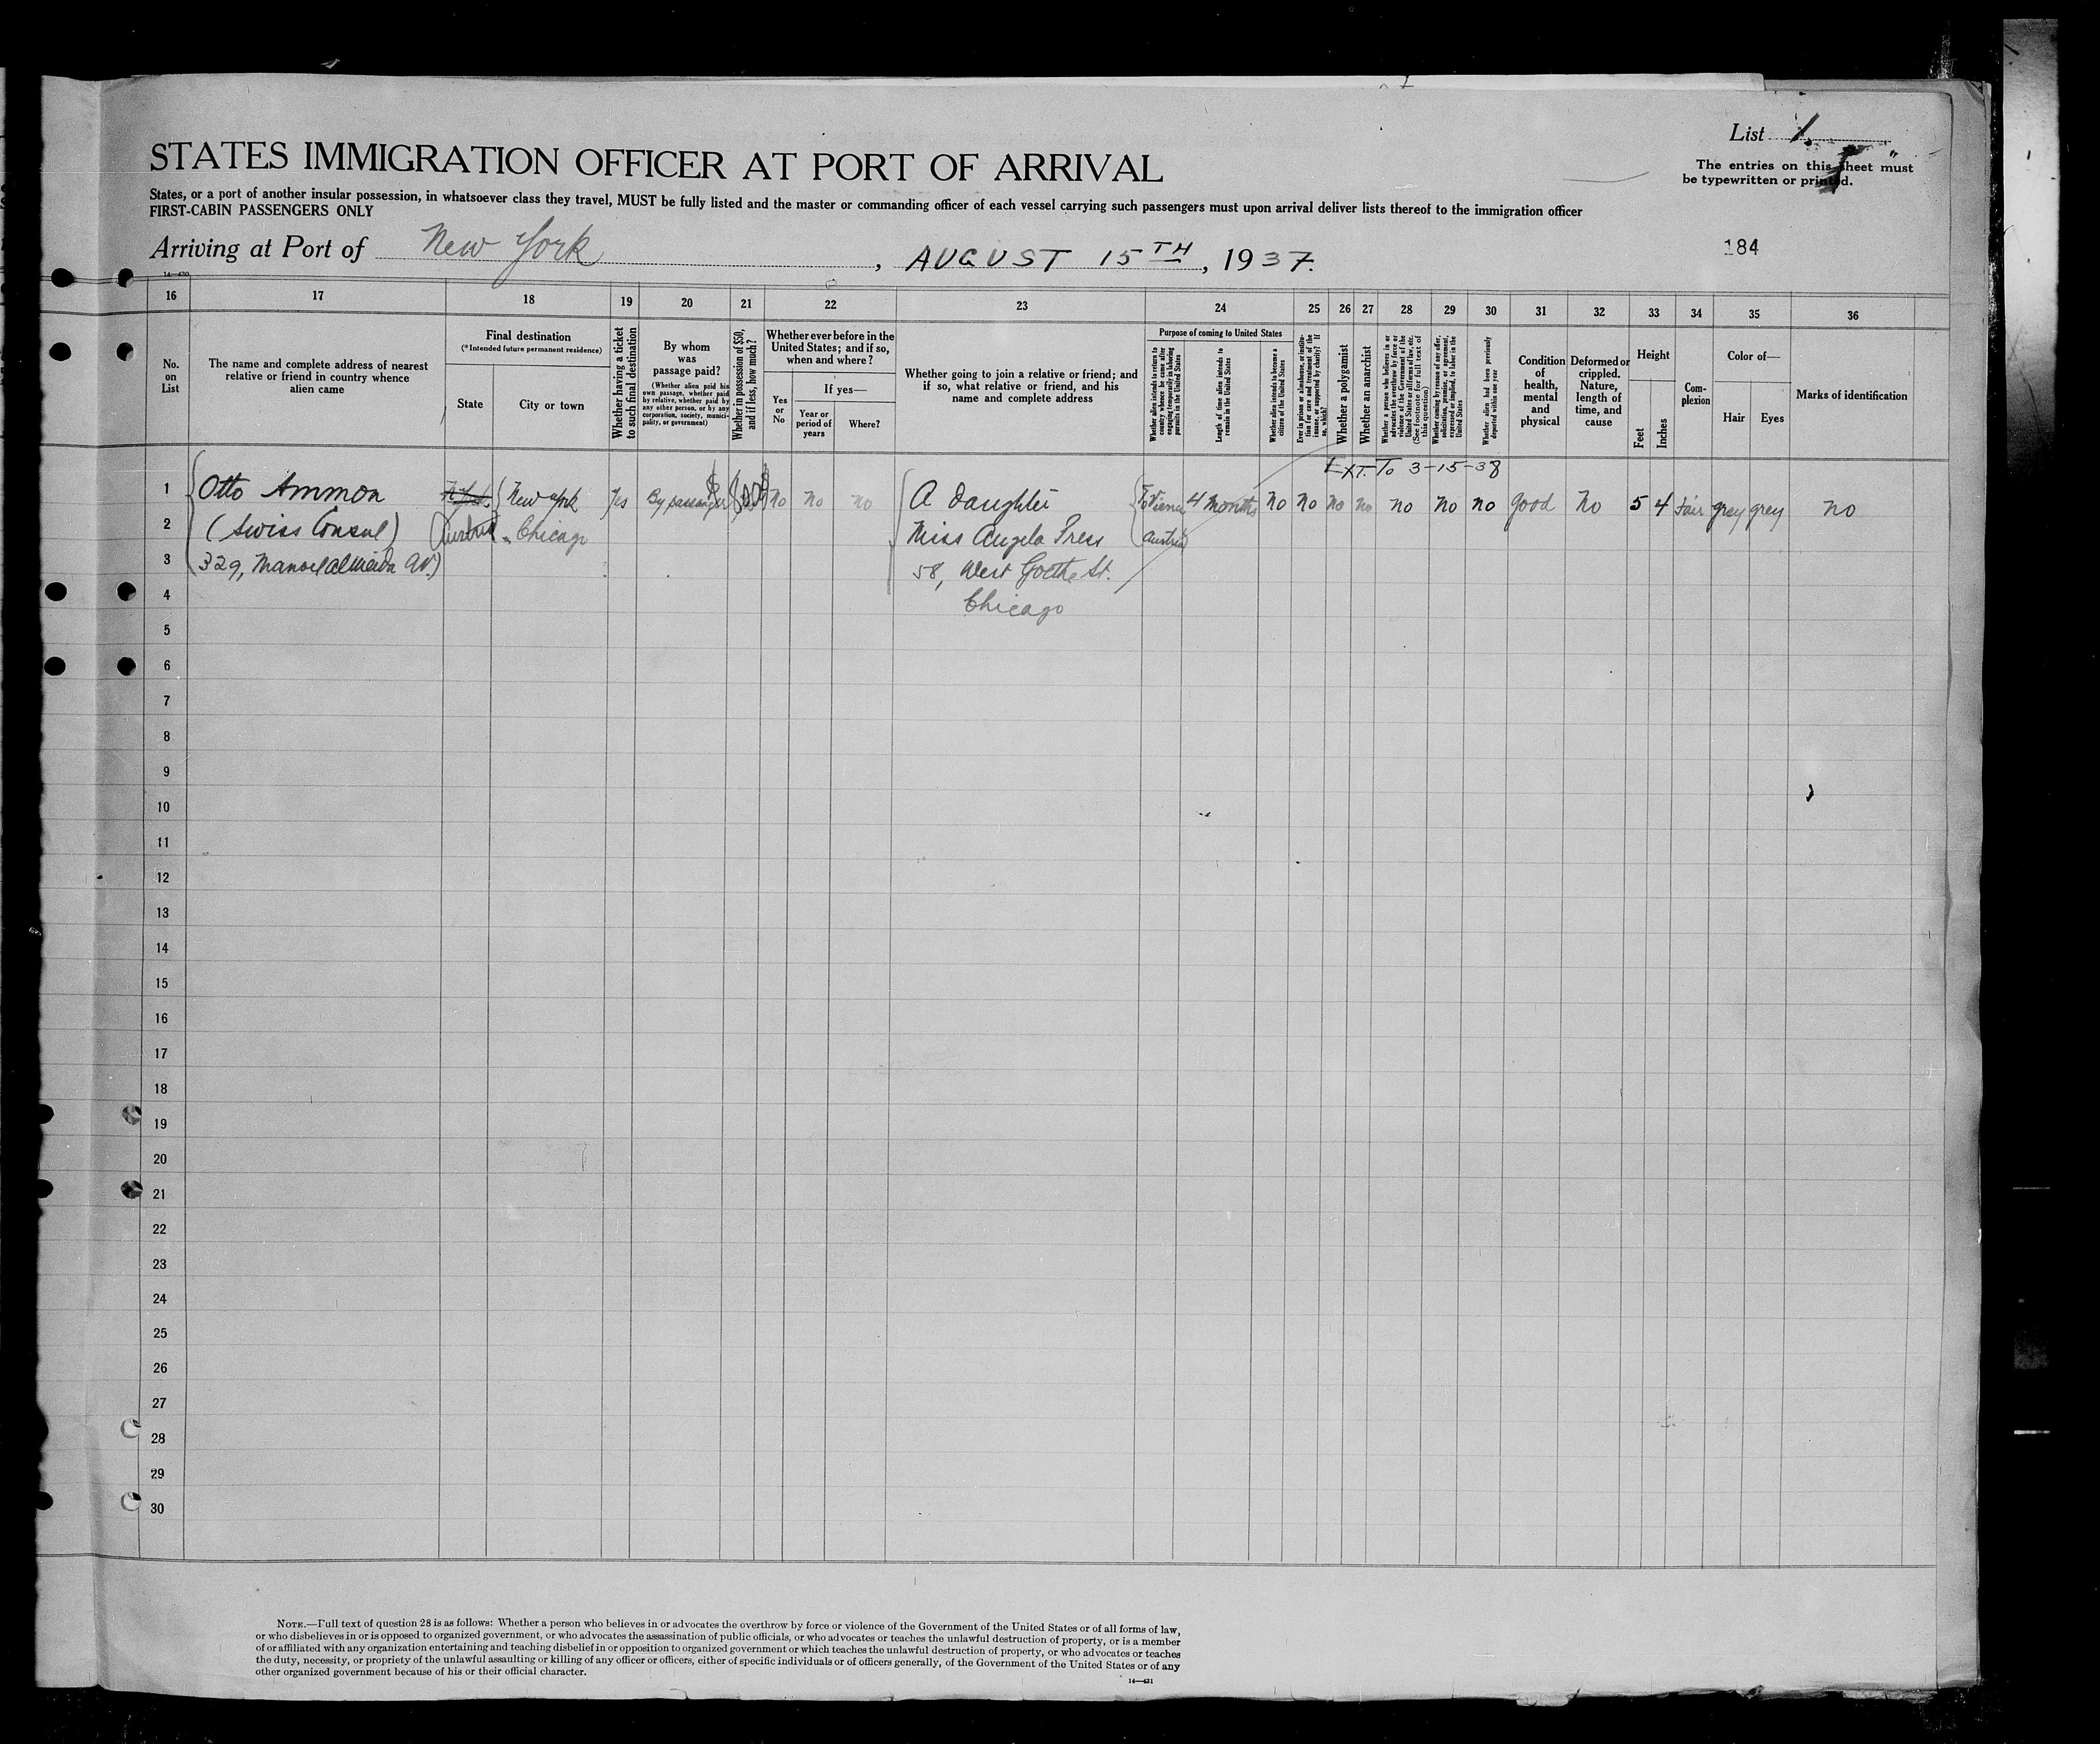 List 1.
STATES IMMIGRATION OFFICER AT PORT OF ARRIVAL
The entries on this sheet must
be typewritten or printed.
States, or a port of another insular possession, in whatsoever class they travel, MUST be fully listed and the master or commanding officer of each vessel carrying such passengers must upon arrival deliver lists thereof to the immigration officer
FIRST-CABIN PASSENGERS ONLY
Arriving at Port of New York, AUGUST 15TH, 1937.
184
14—430
16 17 18 19 20 21 22 23 24 25 26 27 28 29 30 31 32 33 34 35 36
No.
on
List
The name and complete address of nearest
relative or friend in country whence
alien came
Final destination
(*Intended future permanent residence)
State
City or town
Whether having a ticket
to such final destination
By whom
was
passage paid?
(Whether alien paid his
own passage, whether paid
by relative, whether paid by
any other person, or by any
corporation, society, munici-
pality, or government)
Whether in possession of $50,
and if less, how much?
Whether ever before in the
United States; and if so,
when and where?
Yes
or
No
If yes—
Year or
period of
years
Where?
Whether going to join a relative or friend; and
if so, what relative or friend, and his
name and complete address
Purpose of coming to United States
Whether alien intends to return to
country whence he came after
engaging temporarily in laboring
pursuits in the United States
Length of time alien intends to
remain in the United States
Whether alien intends to become a
citizen of the United States
Ever in prison or almshouse, or institu-
tion for care and treatment of the
insane, or supported by charity? If
so, which?
Whether a polygamist
Whether an anarchist
Whether a person who believes in or
advocates the overthrow by force or
violence of the Government of the
United States or all forms of law, etc.
(See footnote for full text of
this question)
Whether coming by reason of any offer,
solicitation, promise, or agreement,
expressed or implied, to labor in the
United States
Whether alien had been previously
deported within one year
Condition
of
health,
mental
and
physical
Deformed or
crippled.
Nature,
length of
time, and
cause
Height
Feet
Inches
Com-
plexion
Color of—
Hair
Eyes
Marks of identification
EXT. To 3-15-38
1 Otto Ammon New York Yes By passenger No no no A daughter To Vienna 4 months no no no no no no no good no 5 4 Fair grey grey no
2 (Swiss Consul) Austria Chicago Miss Angela Press Austria
3 329, Manoel Almeida Av.) 58, West Goethe St.
4 Chicago
5
6
7
8
9
10
11
12
13
14
15
16
17
18
19
20
21
22
23
24
25
26
27
28
29
30
NOTE.—Full text of question 28 is as follows: Whether a person who believes in or advocates the overthrow by force or violence of the Government of the United States or of all forms of law,
or who disbelieves in or is opposed to organized government, or who advocates the assassination of public officials, or who advocates or teaches the unlawful destruction of property, or is a member
of or affiliated with any organization entertaining and teaching disbelief in or opposition to organized government or which teaches the unlawful destruction of property, or who advocates or teaches
the duty, necessity, or propriety of the unlawful assaulting or killing of any officer or officers, either of specific individuals or of officers generally, of the Government of the United States or of any
other organized government because of his or their official character.
14—431